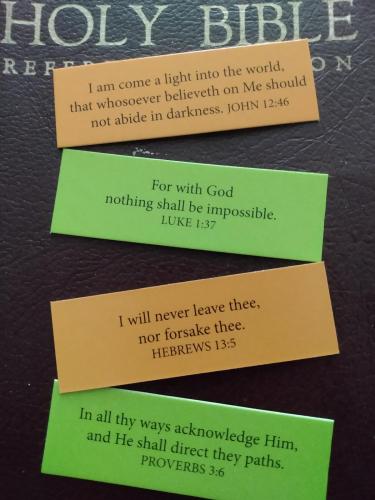 HOLY BIBLE
I am come a light into the world,
that whosoever believeth on Me should
not abide in darkness. JOHN 12:46
For with God
nothing shall be impossible.
LUKE 1:37
I will never leave thee,
nor forsake thee.
HEBREWS 13:5
In all thy ways acknowledge Him,
and He shall direct they paths.
PROVERBS 3:6